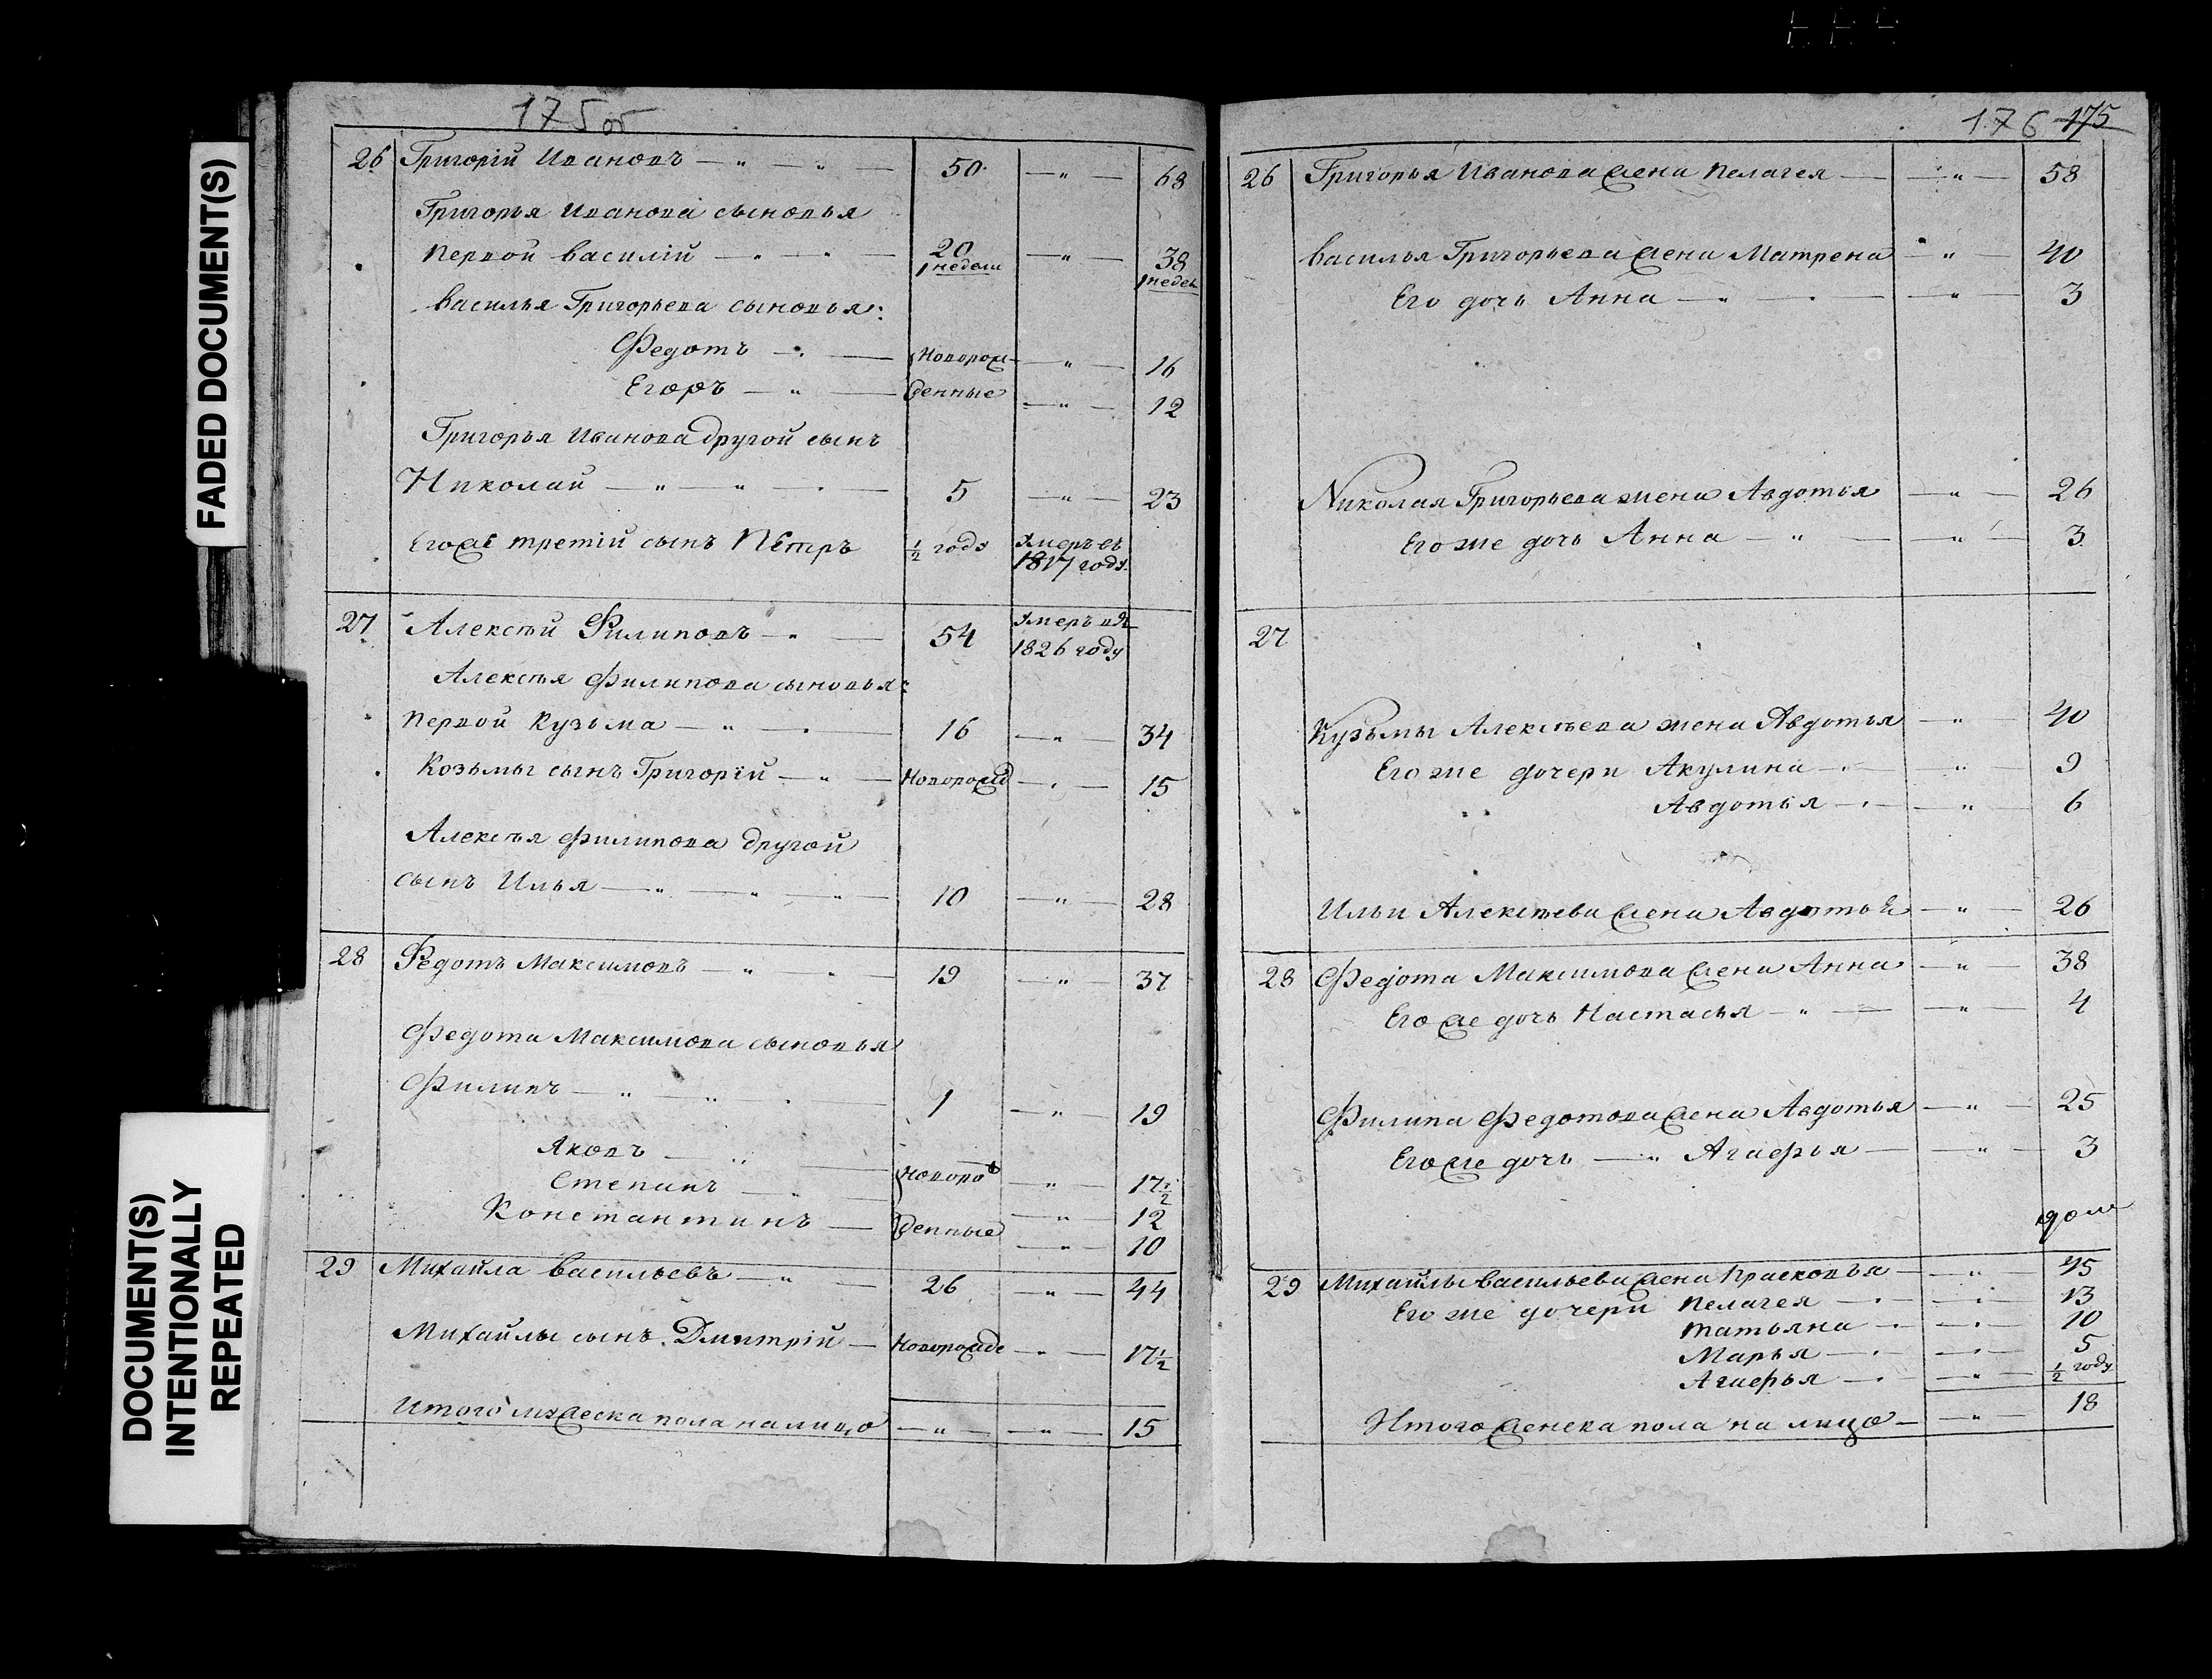 FADED DOCUMENT(S)
DOCUMENT(S)
INTENTIONALLY
REPEATED
175 об
26 Григорій Ивановъ — " — " — 50. — " — 68
Григорья Иванова сыновья
первой Василій — " — " — 20 — " — 38
1 недели 1 недел
Василья Григорьева сыновья:
Федотъ — " — Новорож- — " — 16
Егоръ — " — денные — " — 12
Григорья Иванова другой сынъ
Николай — " — " — 5 — " — 23
Егоже третій сынъ Петръ ½ году Умеръ въ
1817 году.
27 Алексѣй Филиповъ — " — 54 Умеръ въ
1826 году
Алексѣя Филипова сыновья:
первой Кузьма — " — 16 — " — 34
Козьмы сынъ Григорій — " — Новорожд — " — 15
Алексѣя Филипова другой
сынъ Илья — " — " — " — 10 — " — 28
28 Федотъ Максимовъ — " — 19 — " — 37
Федота Максимова сыновья
Филипъ — " — " — 1 — " — 19
Яковъ — " — Новорож — " — 17½
Степанъ — " — — " — 12
Константинъ — денные — " — 10
29 Михайла Васильевъ — " — 26 — " — 44
Михайлы сынъ Дмитрій — Новорожде — " — 17½
Итого мужеска пола на лицо — " — — " — 15
176 175
26 Григорья Иванова жена Пелагея — — " — 58
Василья Григорьева жена Матрена — " — 40
Его дочь Анна — " — — " — 3
Николая Григорьева жена Авдотья — " — 26
Его же дочь Анна — " — — " — 3.
27
Кузьмы Алексѣева жена Авдотья — " — 40
Его же дочери Акулина — " — 9
Авдотья — " — 6
Ильи Алексѣева жена Авдотья — " — 26
28 Федота Максимова жена Анна — " — 38
Его же дочь Настасья — " — — " — 4
Филипа Федотова жена Авдотья — " — 25
Егоже дочь — " Агафья — — " — 3
29 Михайлы Васильева жена Прасковья — " — 45
Его же дочери Пелагея — " — 13
Татьяна — " — 10
Марья — " — 5
Агафья — " — ½ году
Итого женска пола на лицо — " — 18